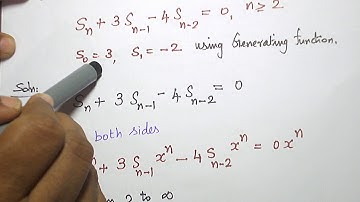 Sₙ + 3Sₙ₋₁ − 4Sₙ₋₂ = 0, n ≥ 2
S₀ = 3, S₁ = −2 using Generating function.
Soln:
Sₙ + 3Sₙ₋₁ − 4Sₙ₋₂ = 0
both sides
xⁿ + 3Sₙ₋₁xⁿ − 4Sₙ₋₂xⁿ = 0xⁿ
2 to ∞